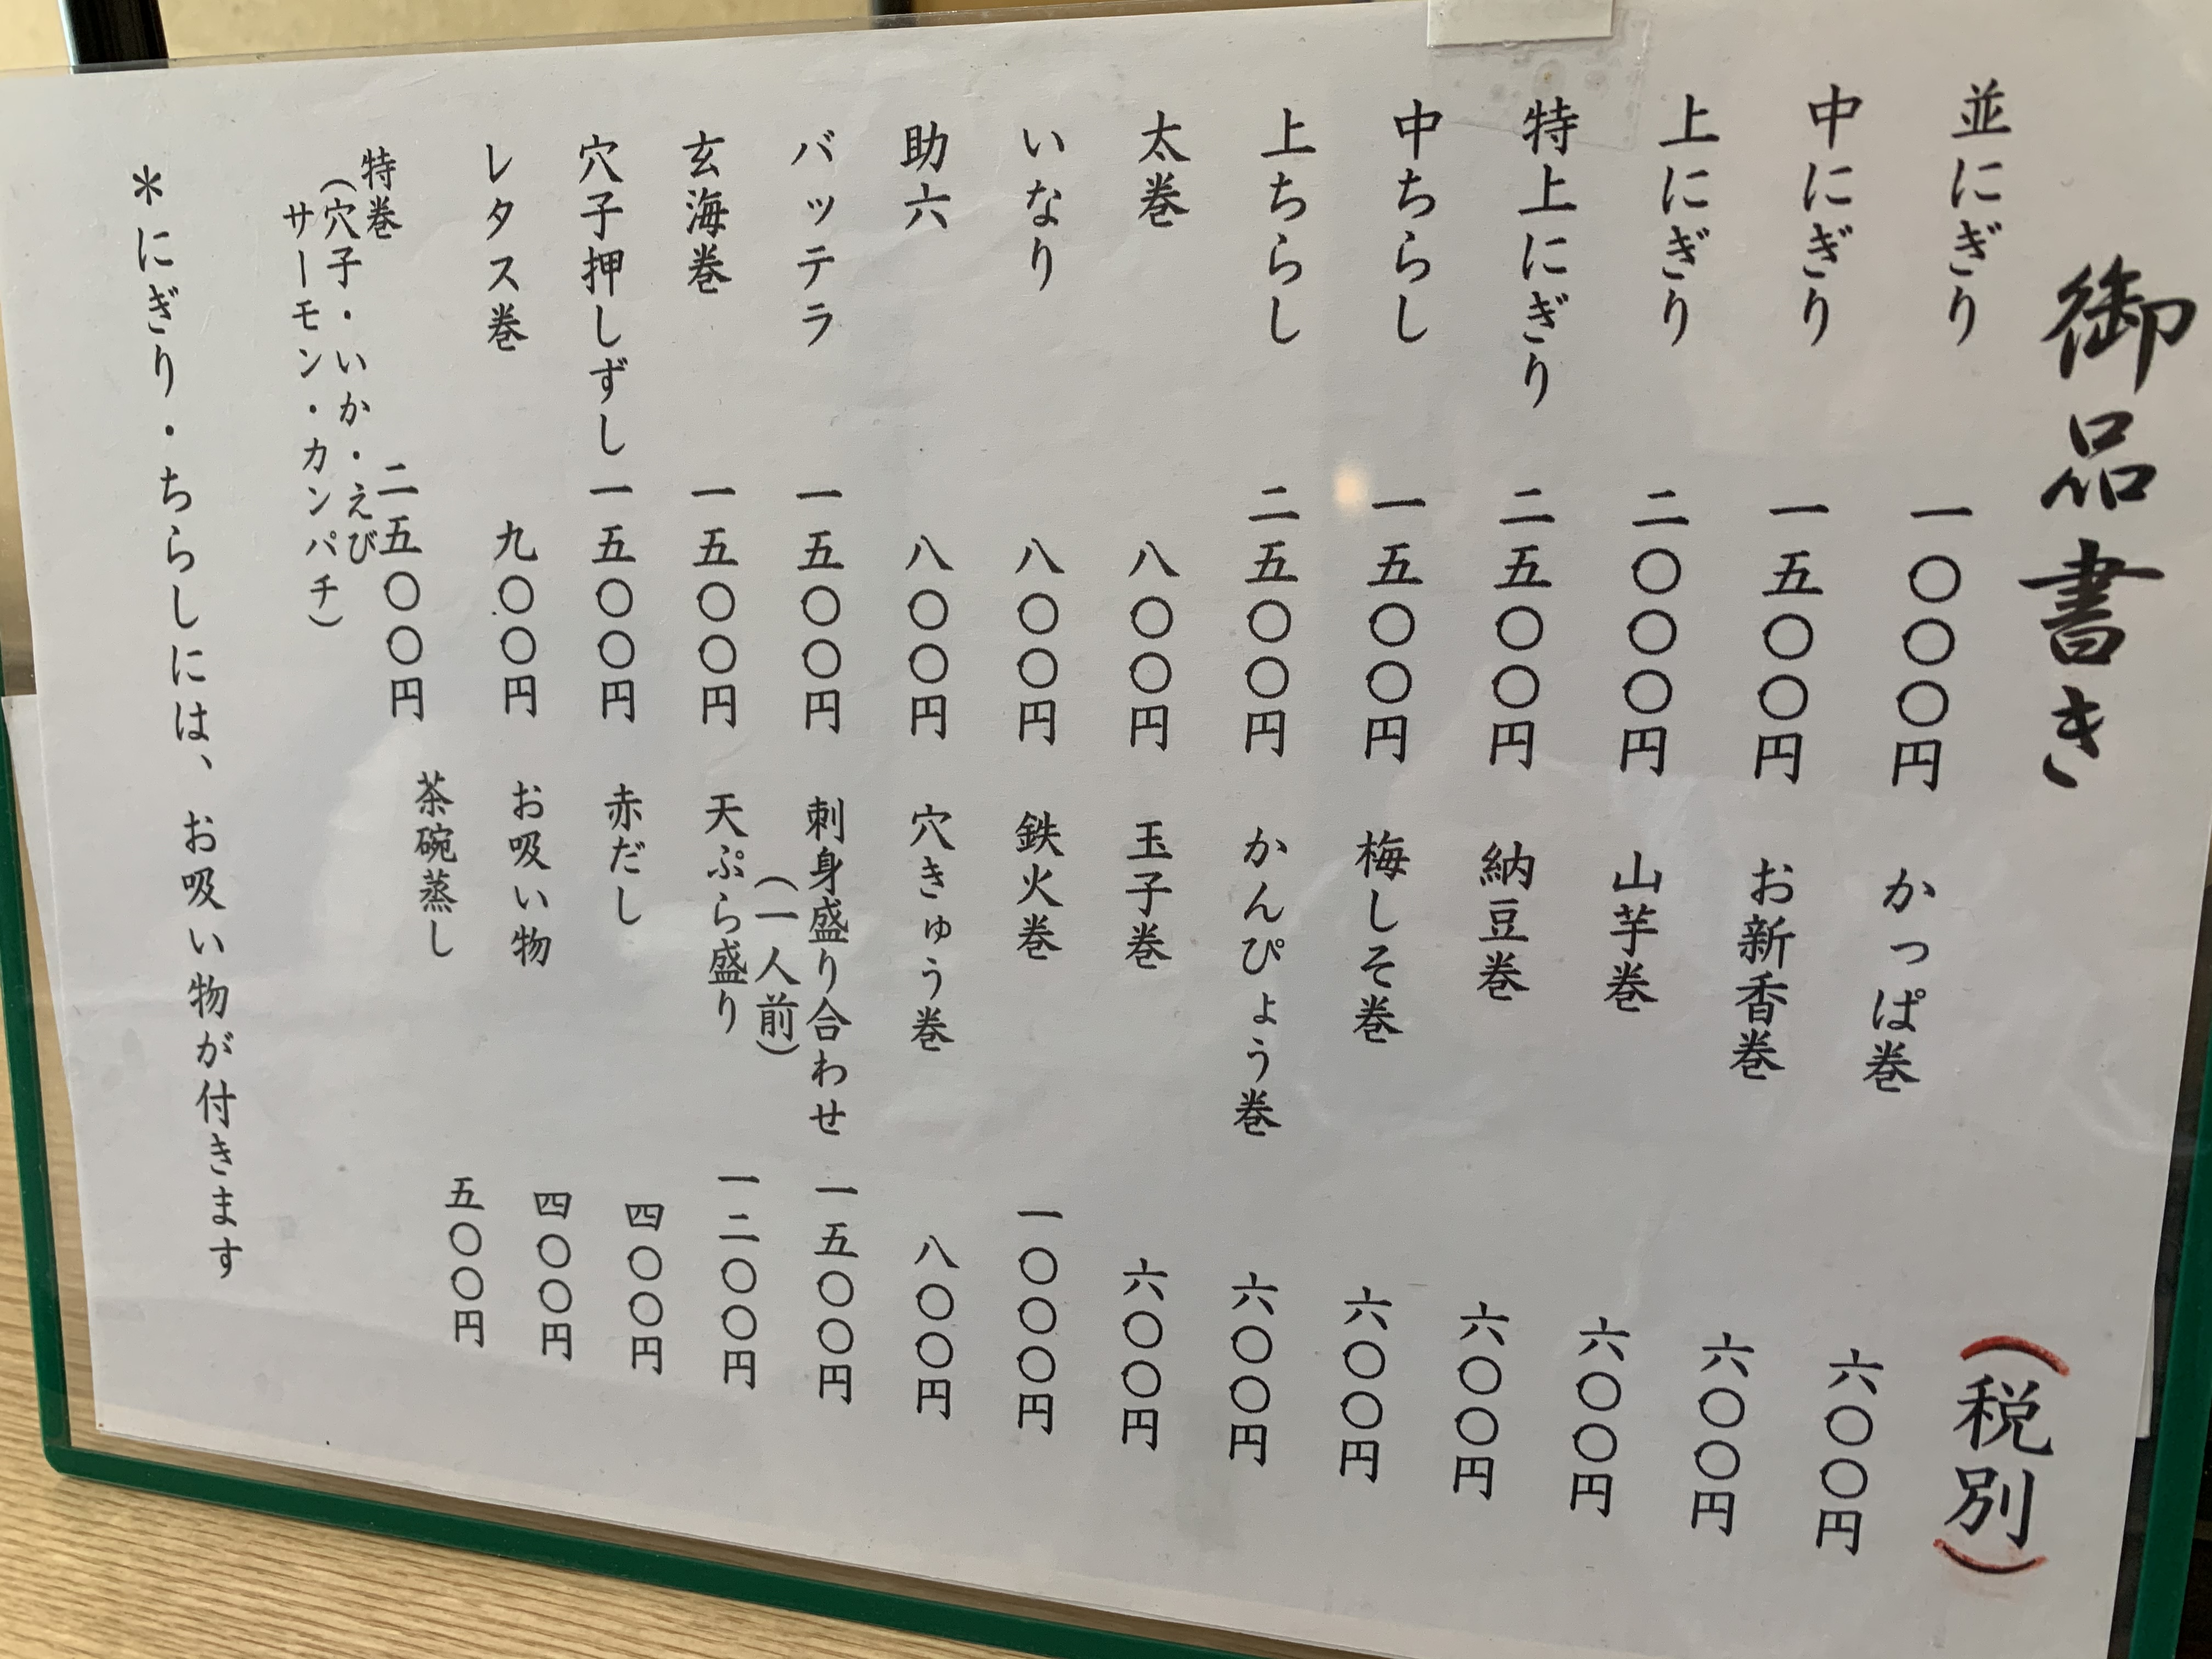 御品書き
（税別）
並にぎり 一〇〇〇円
中にぎり 一五〇〇円
上にぎり 二〇〇〇円
特上にぎり 二五〇〇円
中ちらし 一五〇〇円
上ちらし 二五〇〇円
太巻 八〇〇円
いなり 八〇〇円
助六 八〇〇円
バッテラ 一五〇〇円
玄海巻 一五〇〇円
穴子押しずし 一五〇〇円
レタス巻 九〇〇円
特巻 二五〇〇円
（穴子・いか・えび
サーモン・カンパチ）
かっぱ巻 六〇〇円
お新香巻 六〇〇円
山芋巻 六〇〇円
納豆巻 六〇〇円
梅しそ巻 六〇〇円
かんぴょう巻 六〇〇円
玉子巻 六〇〇円
鉄火巻 一〇〇〇円
穴きゅう巻 八〇〇円
刺身盛り合わせ 一五〇〇円
（一人前）
天ぷら盛り 一二〇〇円
赤だし 四〇〇円
お吸い物 四〇〇円
茶碗蒸し 五〇〇円
＊にぎり・ちらしには、お吸い物が付きます